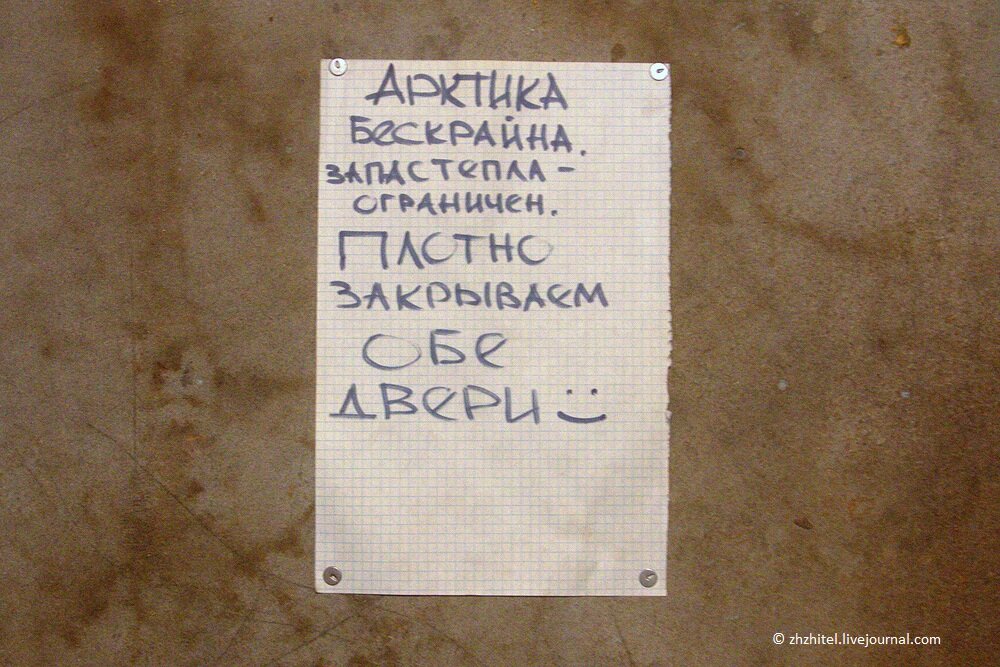 АРКТИКА
БЕСКРАЙНА.
ЗАПАС ТЕПЛА –
ОГРАНИЧЕН.
ПЛОТНО
ЗАКРЫВАЕМ
ОБЕ
ДВЕРИ :)
© zhzhitel.livejournal.com